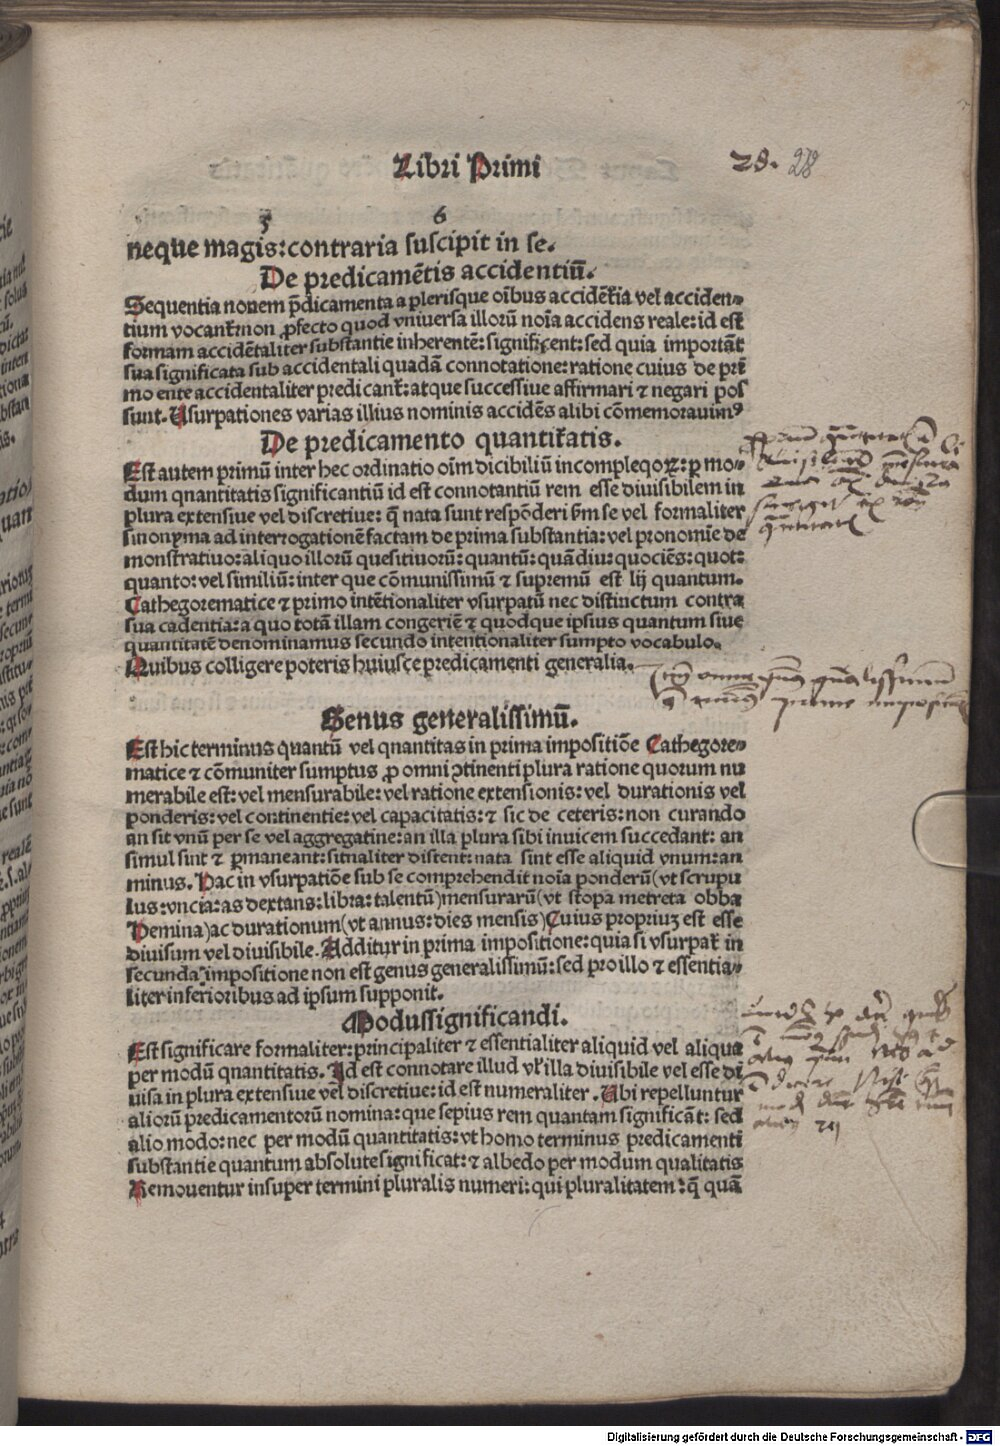 Libri Primi 28. 28
5 6
neque magis: contraria suscipit in se.
De predicamẽtis accidentiũ.
Sequentia nouem p̃dicamenta a plerisque oĩbus accidẽtia vel acciden-
tium vocant̃: non ꝓfecto quod vniuersa illorũ noĩa accidens reale: id est
formam accidẽtaliter substantie inherentẽ: significent: sed quia importãt
sua significata sub accidentali quadã connotatione: ratione cuius de pri
mo ente accidentaliter predicant̃: atque successiue affirmari ⁊ negari pos
sunt. Usurpationes varias illius nominis accidẽs alibi cõmemorauimꝰ
De predicamento quantitatis.
Est autem primũ inter hec ordinatio oĩm dicibiliũ incomplexoꝝ: p̱ mo-
dum qnantitatis significantiũ id est connotantiũ rem esse diuisibilem in
plura extensiue vel discretiue: q̃ nata sunt respõderi b̃m se vel formaliter
sinonyma ad interrogationẽ factam de prima substantia: vel pronomĩe de
monstratiuo: aliquo illorũ quesitiuorũ: quantũ: quãdiu: quociẽs: quot:
quanto: vel similiũ: inter que cõmunissimũ ⁊ supremũ est lij quantum.
Cathegorematice ⁊ primo intẽtionaliter vsurpatũ nec distinctum contra
sua cadentia: a quo totã illam congeriẽ ⁊ quodque ipsius quantum siue
quantitatẽ denominamus secundo intentionaliter sumpto vocabulo.
Quibus colligere poteris huiusce predicamenti generalia.
Genus generalissimũ.
Est hic terminus quantũ vel qnantitas in prima impositiõe Cathegore-
matice ⁊ cõmuniter sumptus ꝓ omni ↄtinenti plura ratione quorum nu
merabile est: vel mensurabile: vel ratione extensionis: vel durationis vel
ponderis: vel continentie: vel capacitatis: ⁊ sic de ceteris: non curando
an sit vnũ per se vel aggregatine: an illa plura sibi inuicem succedant: an
simul sint ⁊ p̱maneant: sitnaliter distent: nata sint esse aliquid vnum: an
minus. Hac in vsurpatiõe sub se comprehendit noĩa ponderũ (vt scrupu
lus: vncia: as dextans: libra: talentũ) mensurarũ (vt stopa metreta obba
Hemina) ac durationum (vt annus: dies mensis) Cuius propriuʒ est esse
diuisum vel diuisibile. Additur in prima impositione: quia si vsurpat̃ in
secunda impositione non est genus generalissimũ: sed pro illo ⁊ essentia-
liter inferioribus ad ipsum supponit.
Modussignificandi.
Est significare formaliter: principaliter ⁊ essentialiter aliquid vel aliqua
per modũ qnantitatis. Id est connotare illud vl̃ illa diuisibile vel esse di
uisa in plura extensiue vel discretiue: id est numeraliter. Ubi repelluntur
aliorũ predicamentorũ nomina: que sepius rem quantam significãt: sed
alio modo: nec per modũ quantitatis: vt homo terminus predicamenti
substantie quantum absolute significat: ⁊ albedo per modum qualitatis
Remouentur insuper termini pluralis numeri: qui pluralitatem: q̃ quã
Digitalisierung gefördert durch die Deutsche Forschungsgemeinschaft - DFG